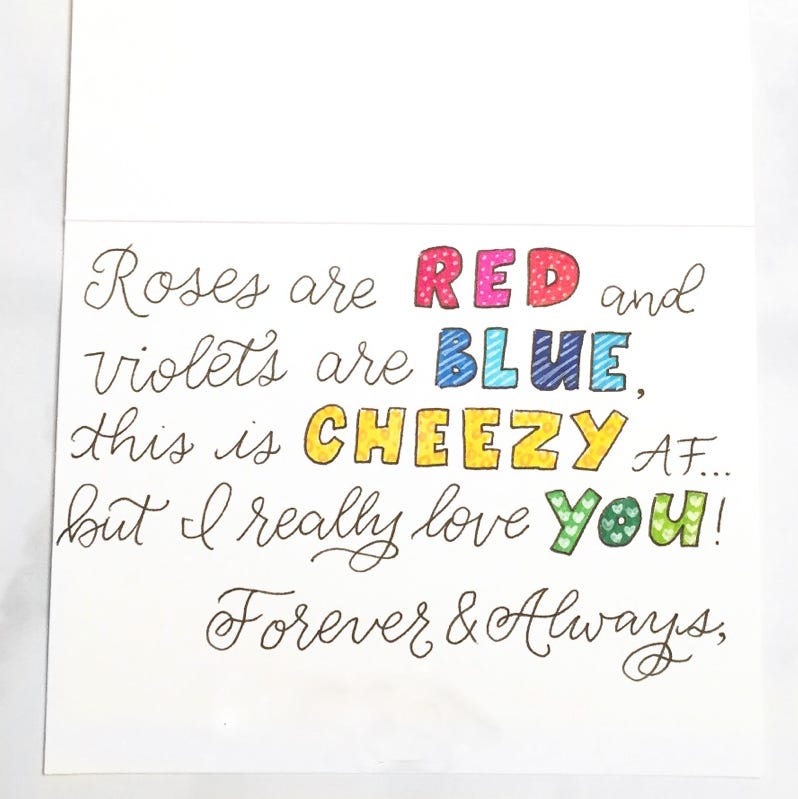 Roses are RED and
violets are BLUE,
this is CHEEZY AF...
but I really love YOU!
Forever & Always,